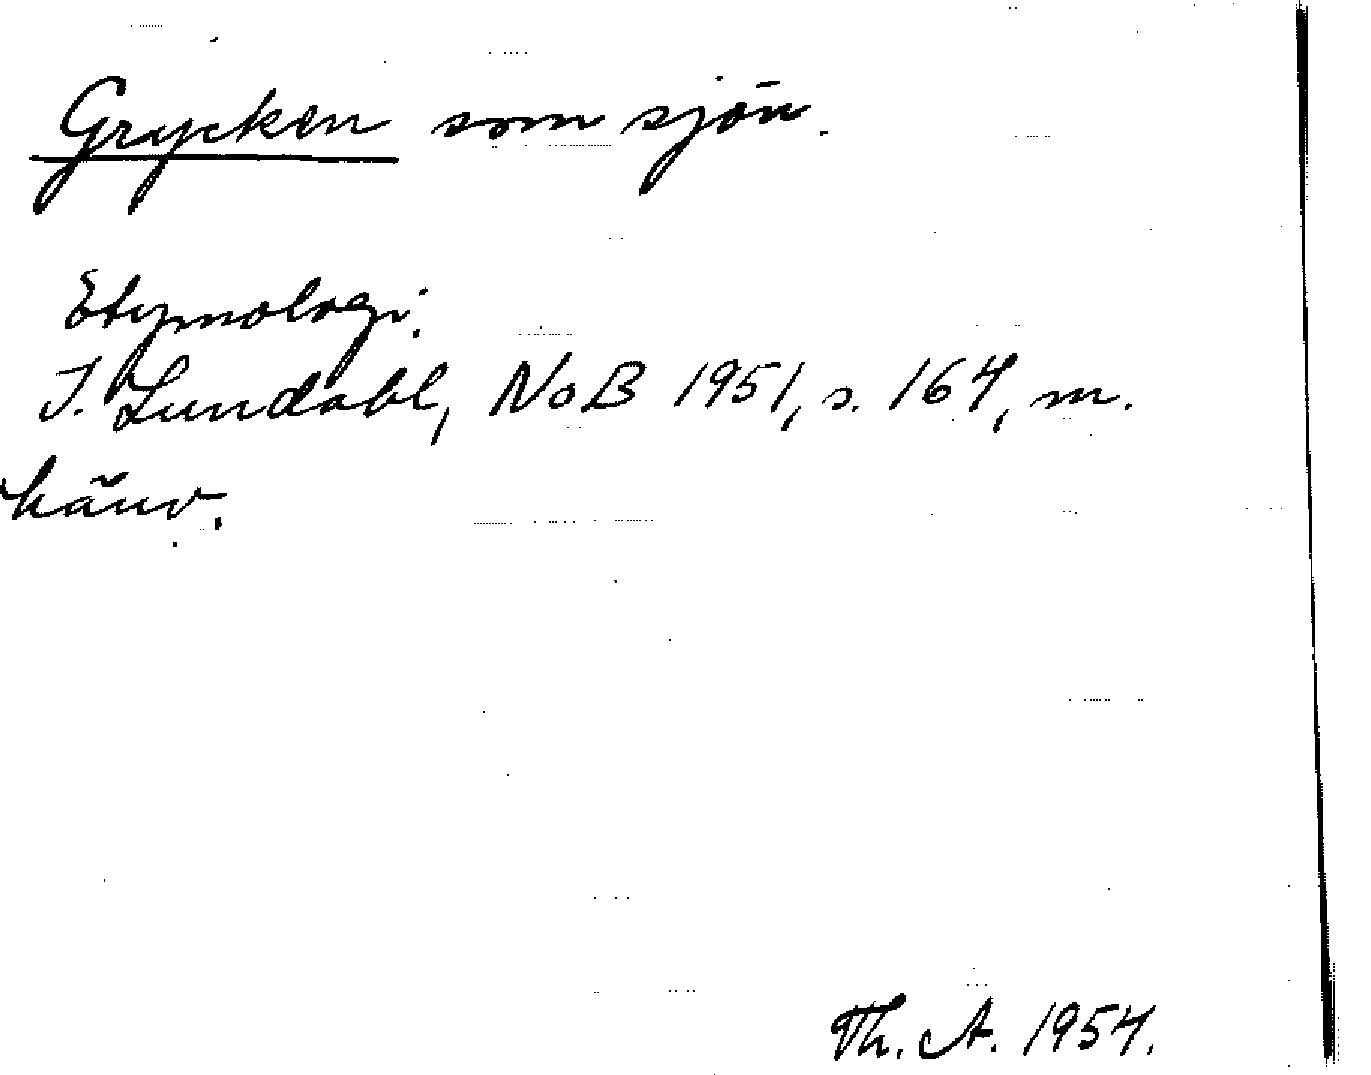 Grycken som sjön.
Etymologi:
I. Lundahl, NoB 1951, s. 164, m.
hänv.
Th. A. 1954.